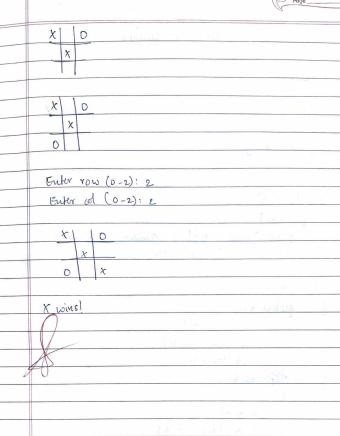 X | | O
| X |
| |
X | | O
| X |
O | |
Enter row (0-2): 2
Enter col (0-2): 2
X | | O
| X |
O | | X
X wins!